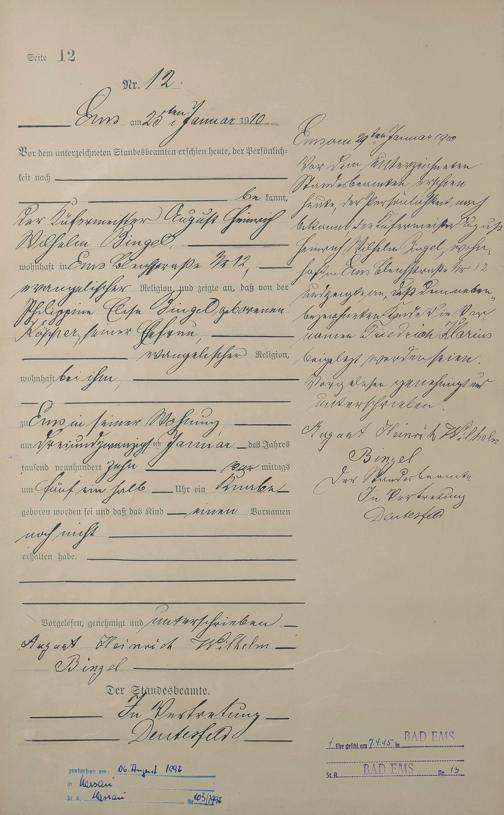 Seite 12
Nr. 12.
Ems am 25ten Januar 1910
Vor dem unterzeichneten Standesbeamten erschien heute, der Persönlich-
keit nach
bekannt,
der Küfermeister August Heinrich
Wilhelm Bingel,
wohnhaft in Ems Bleichstraße Nr 12,
evangelischer Religion, und zeigte an, daß von der
Philippine Elise Bingel geborenen
seiner Ehefrau,
evangelischer Religion,
wohnhaft bei ihm,
zu Ems in seiner Wohnung,
am dreiundzwanzigsten Januar des Jahres
tausend neunhundert zehn vormittags
um fünf ein halb Uhr ein Knabe
geboren worden sei und daß das Kind einen Vornamen
noch nicht
erhalten habe.
Vorgelesen, genehmigt und unterschrieben
August Heinrich Wilhelm
Bingel
Der Standesbeamte.
In Vertretung
gestorben am: 06. August 1992
in Nassau
St. A. Nassau Nr. 103/1992
Ems am 29ten Januar 1910
Vor dem unterzeichneten
Standesbeamten erschien
heute der Persönlichkeit nach
bekannt, der Küfermeister August
Heinrich Wilhelm Bingel, wohn-
haft in Ems Bleichstraße Nr 12
und zeigte an, daß dem neben-
bezeichneten Kinde die Vor-
namen Friedrich
beigelegt worden seien.
Vorgelesen genehmigt und
unterschrieben.
August Heinrich Wilhelm
Bingel
Der Standesbeamte
In Vertretung
1. Ehe geschl. am 7.4.45 in BAD EMS
St. A. BAD EMS Nr. 13